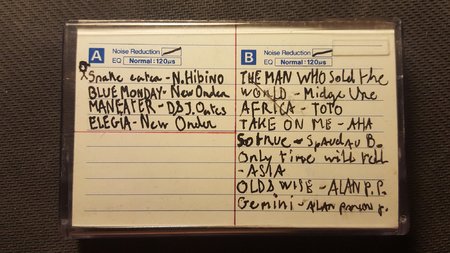 A Noise Reduction
EQ Normal:120μs
Snake eater - N.Hibino
BLUE MONDAY - New Order
MANEATER - D&J.Oates
ELEGIA - New Order
B Noise Reduction
EQ Normal:120μs
THE MAN WHO Sold the
WORLD - Midge Ure
AFRICA - TOTO
TAKE ON ME - AHA
So true - Spandau B.
Only time will tell
- ASIA
OLD & WISE - ALAN P.P.
Gemini - ALAN parson p.